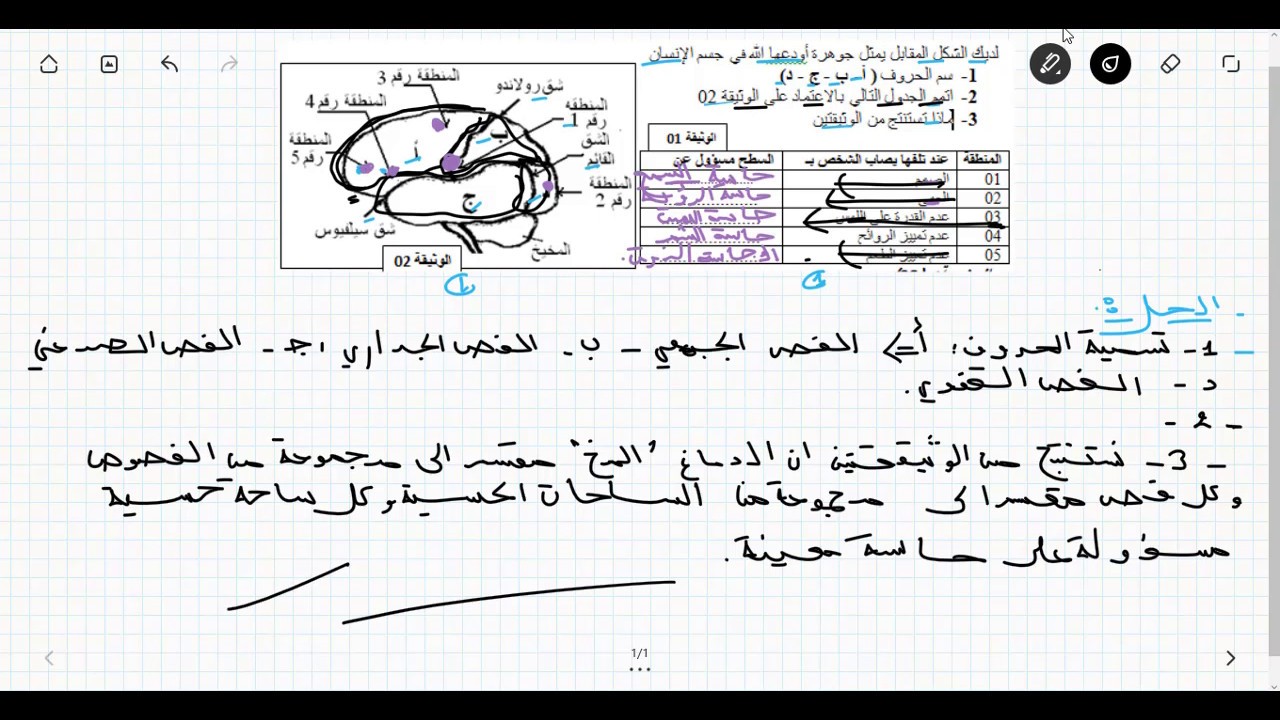 لديك الشكل المقابل يمثل جوهرة أودعها الله في جسم الإنسان
1- سم الحروف ( أ- ب - ج - د)
2- اتمم الجدول التالي بالاعتماد على الوثيقة 02
3- ماذا تستنتج من الوثيقتين
الوثيقة 01
المنطقة عند تلفها يصاب الشخص بـ السطح مسؤول عن
01 الصمم حاسة السمع
02 العمى حاسة الرؤية
03 عدم القدرة على اللمس حاسة اللمس
04 عدم تمييز الروائح حاسة الشم
05 عدم تمييز الطعم
المنطقة رقم 3
شق رولاندو
المنطقة رقم 4
المنطقة رقم 1
المنطقة رقم 5
الشق القائم
المنطقة رقم 2
أ
ب
ج
شق سيلفيوس
المخيخ
الوثيقة 02
1
1
- الحل:
- 1- تسمية الحروف: أ => الفص الجبهي - ب- الفص الجداري، ج- الفص الصدغي
د- الفص القفدي.
- 2 -
- 3- نستنتج من الوثيقتين ان الدماغ "المخ" مقسم الى مجموعة من الفصوص
وكل فص مقسم الى مجموعة من الساحات الحسية، وكل ساحة حسية
مسؤولة على حاسة معينة.
1/1